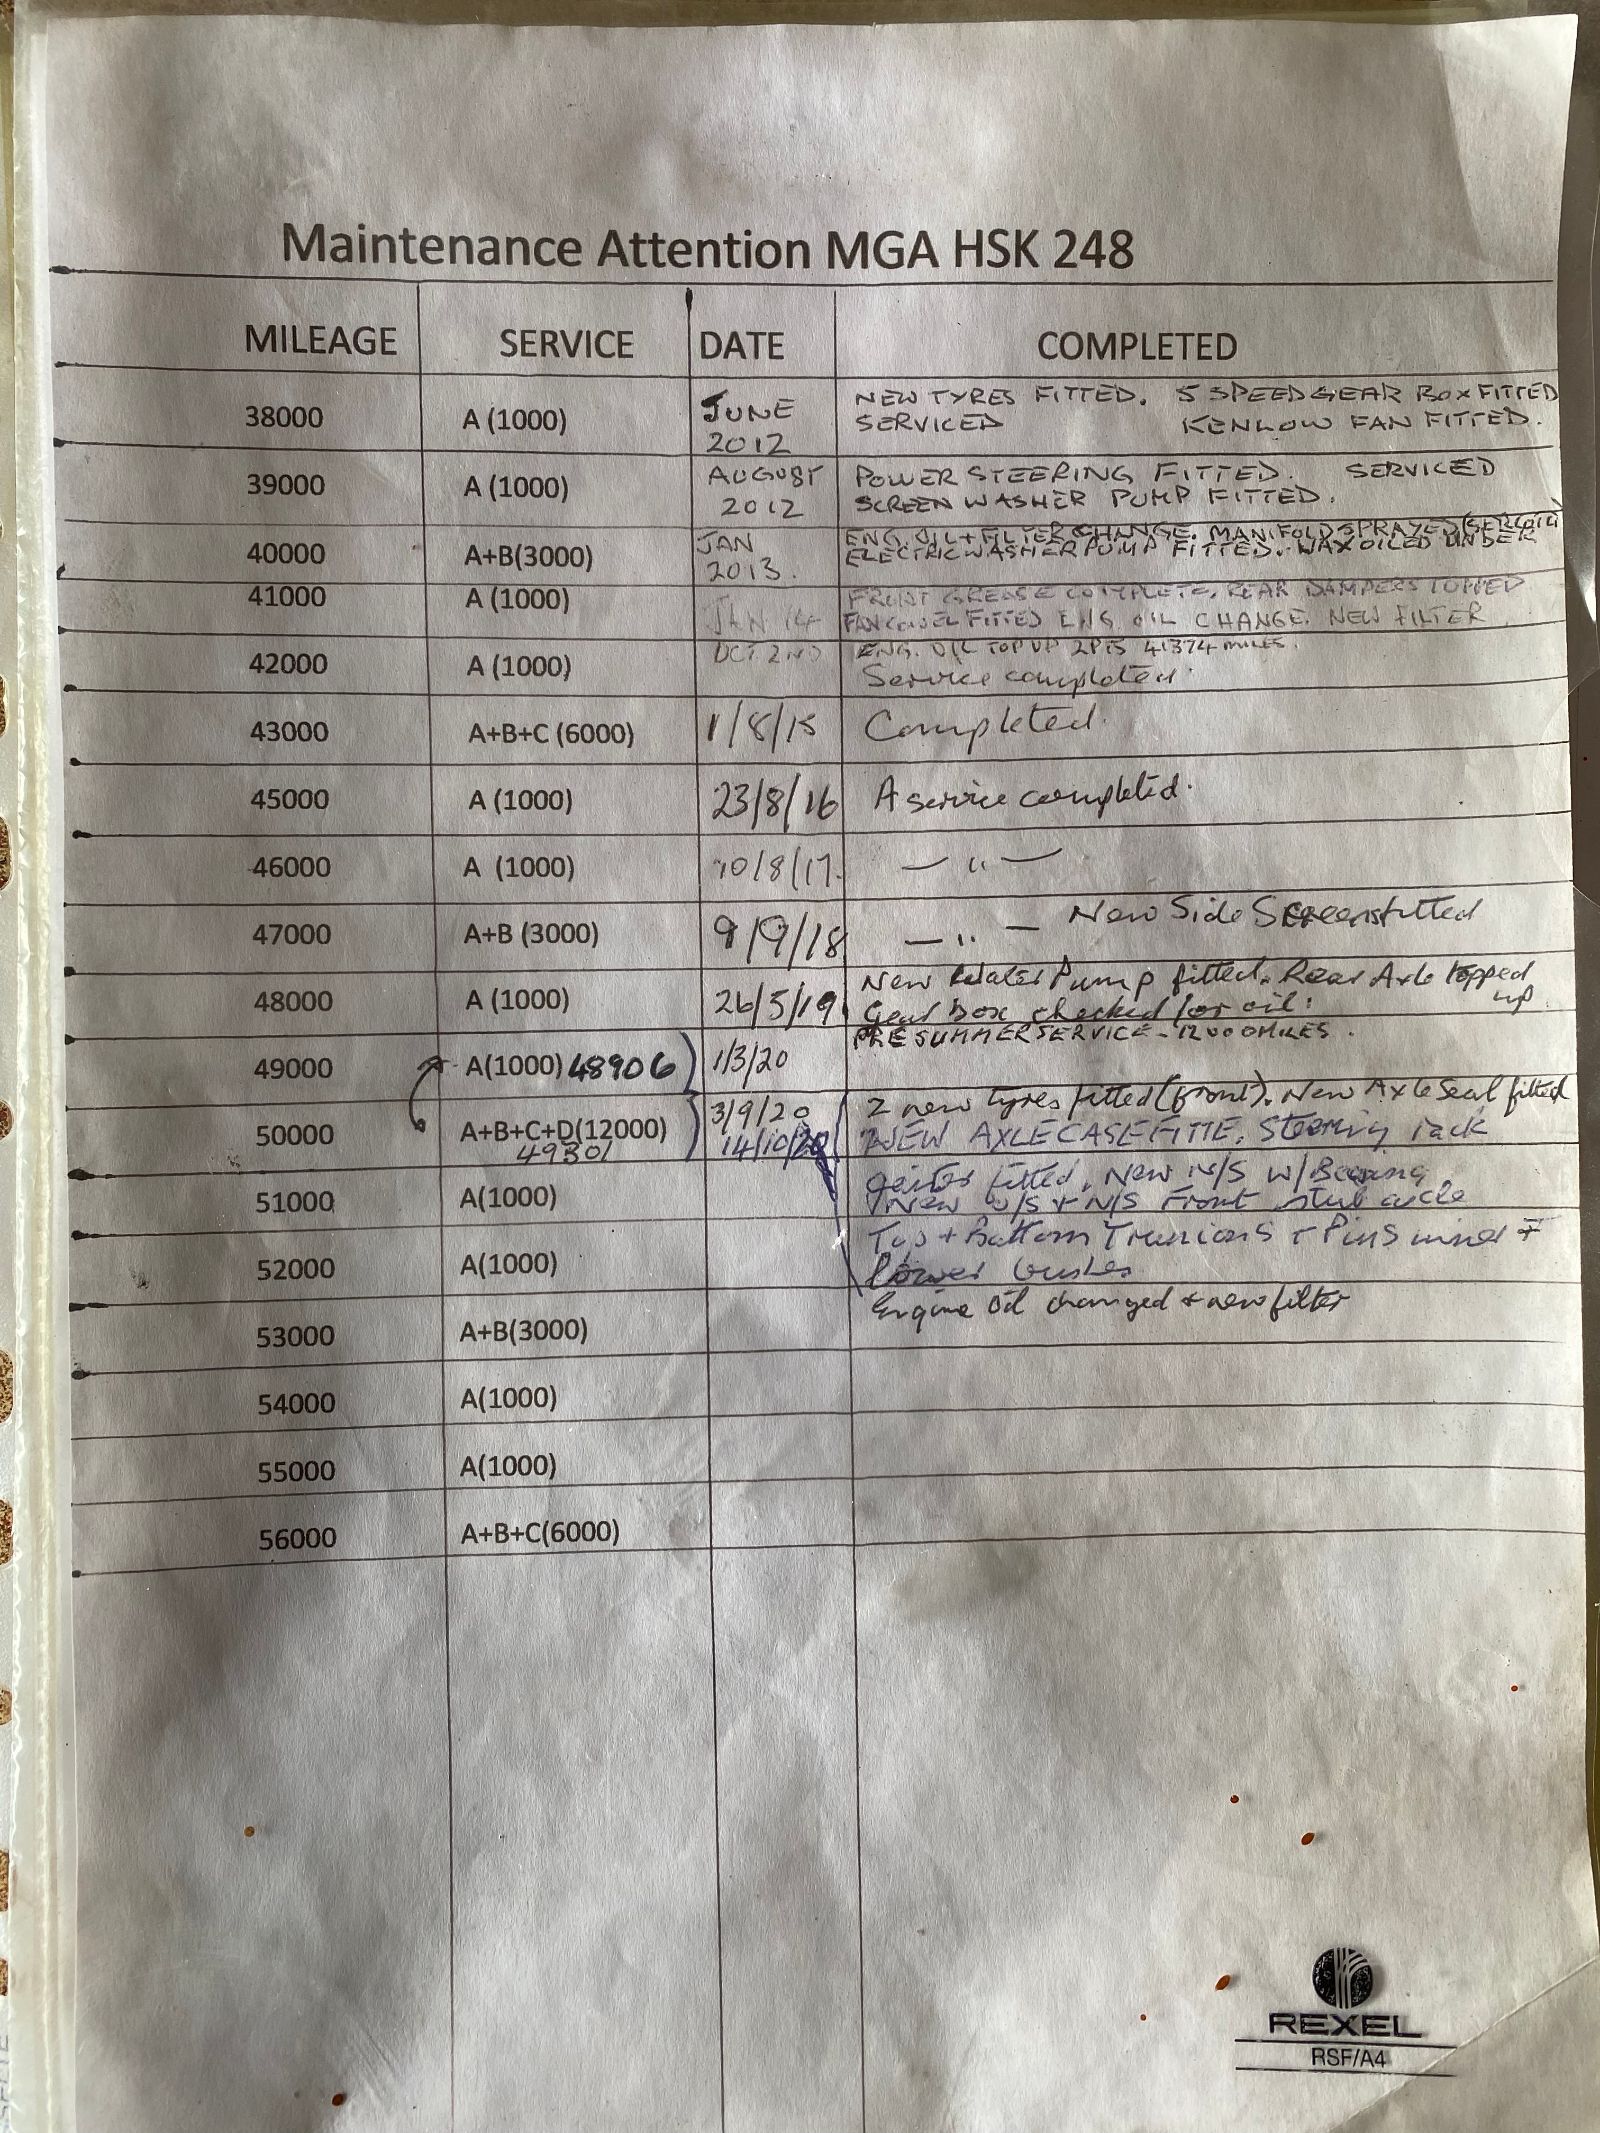 Maintenance Attention MGA HSK 248
MILEAGE SERVICE DATE COMPLETED
38000 A (1000) JUNE 2012 NEW TYRES FITTED. 5 SPEED GEAR BOX FITTED
SERVICED KENLOW FAN FITTED.
39000 A (1000) AUGUST 2012 POWER STEERING FITTED. SERVICED
SCREEN WASHER PUMP FITTED.
40000 A+B(3000) JAN 2013. ENG. OIL + FILTER CHANGE. MANIFOLD SPRAYED
ELECTRIC WASHER PUMP FITTED. WAXOILED UNDER
41000 A (1000) JAN 14 FRONT GREASE COMPLETE, REAR DAMPERS TOPPED
FAN FITTED ENG. OIL CHANGE. NEW FILTER
42000 A (1000) OCT 2ND ENG. OIL TOP UP 2PTS 41374 MILES.
Service completed.
43000 A+B+C (6000) 1/8/15 Completed.
45000 A (1000) 23/8/16 A service completed.
46000 A (1000) 10/8/17. — " —
47000 A+B (3000) 9/9/18 — " — New Side Screens fitted
48000 A (1000) 26/5/19 New Water Pump fitted. Rear Axle topped up
Gear box checked for oil.
49000 A(1000) 48906 1/3/20 PRE SUMMER SERVICE - 12000 MILES.
50000 A+B+C+D(12000) 3/9/20 2 new tyres fitted (front). New Axle Seal fitted
49301 14/10/20 NEW AXLE CASE FITTE. Steering rack
51000 A(1000) gaiter fitted. New N/S W/Bearing
New O/S + N/S Front stub axle
52000 A(1000) Top + Bottom Trunions + Pins
lower bushes
53000 A+B(3000) Engine Oil changed + new filter
54000 A(1000)
55000 A(1000)
56000 A+B+C(6000)
REXEL
RSF/A4